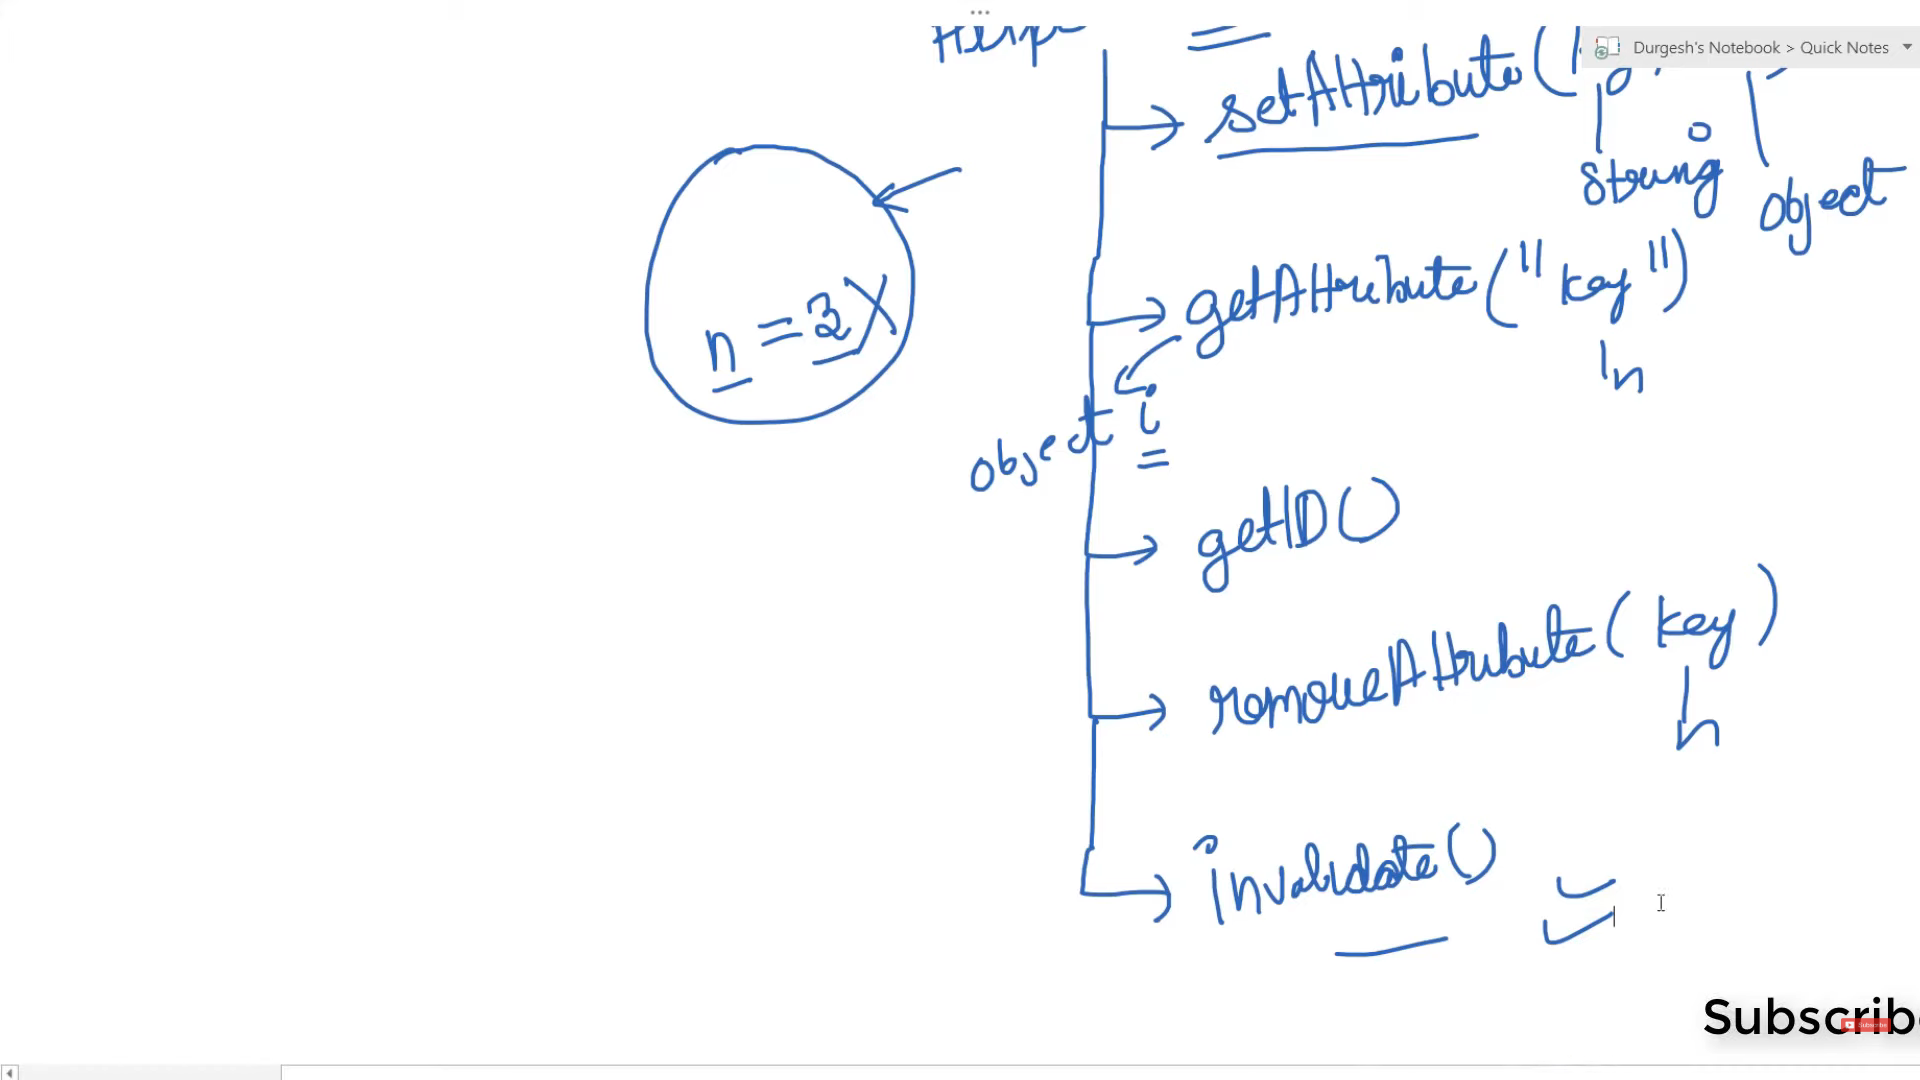 Durgesh's Notebook > Quick Notes
setAttribute(
string
object
getAttribute("key")
n
n = 3 X
object i
getID()
removeAttribute(key)
n
invalidate()
Subscrib
Subscribe